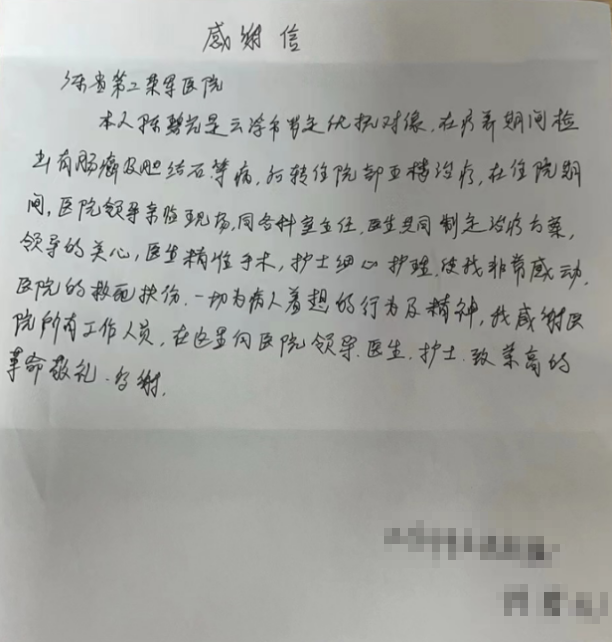 感谢信
省第二荣军医院
本人陈碧是云浮市定优抚对像,在疗养期间检
出有肠癌及胆结石等病,转住院部正稽治疗,在住院期
间,医院领导亲临现场,同各科室主任,医生共同制定治疗方案,
领导的关心,医生精准手术,护士细心护理,使我非常感动,
医院的救死扶伤,一切为病人着想的行为及精神,我感谢医
院所有工作人员,在这里向医院领导、医生、护士、致崇高的
革命敬礼、谢